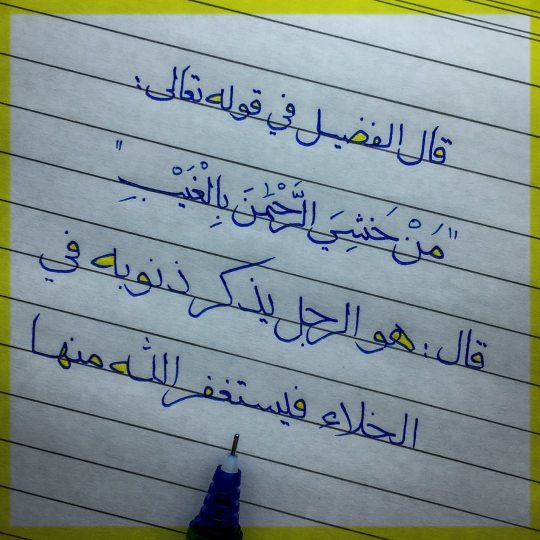 قال الفضيل في قوله تعالى:
"مَنْ خَشِيَ الرَّحْمٰنَ بِالْغَيْبِ"
قال: هو الرجل يذكر ذنوبه في
الخلاء فيستغفر الله منها